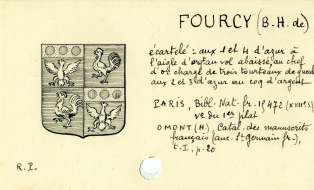 FOURCY (B. H. de)
écartelé : aux 1 et 4 d'azur à
l'aigle d'or au vol abaissé, au chef
d'or chargé de trois tourteaux de gueul
aux 2 et 3 d'azur au coq d'argent
PARIS, Bibl. Nat. fr. 19472 (XVIIIe s)
ve du 1er plat
OMONT (H.), Catal. des manuscrits
français (anc. St Germain fr.),
t. I, p. 20
R. P.